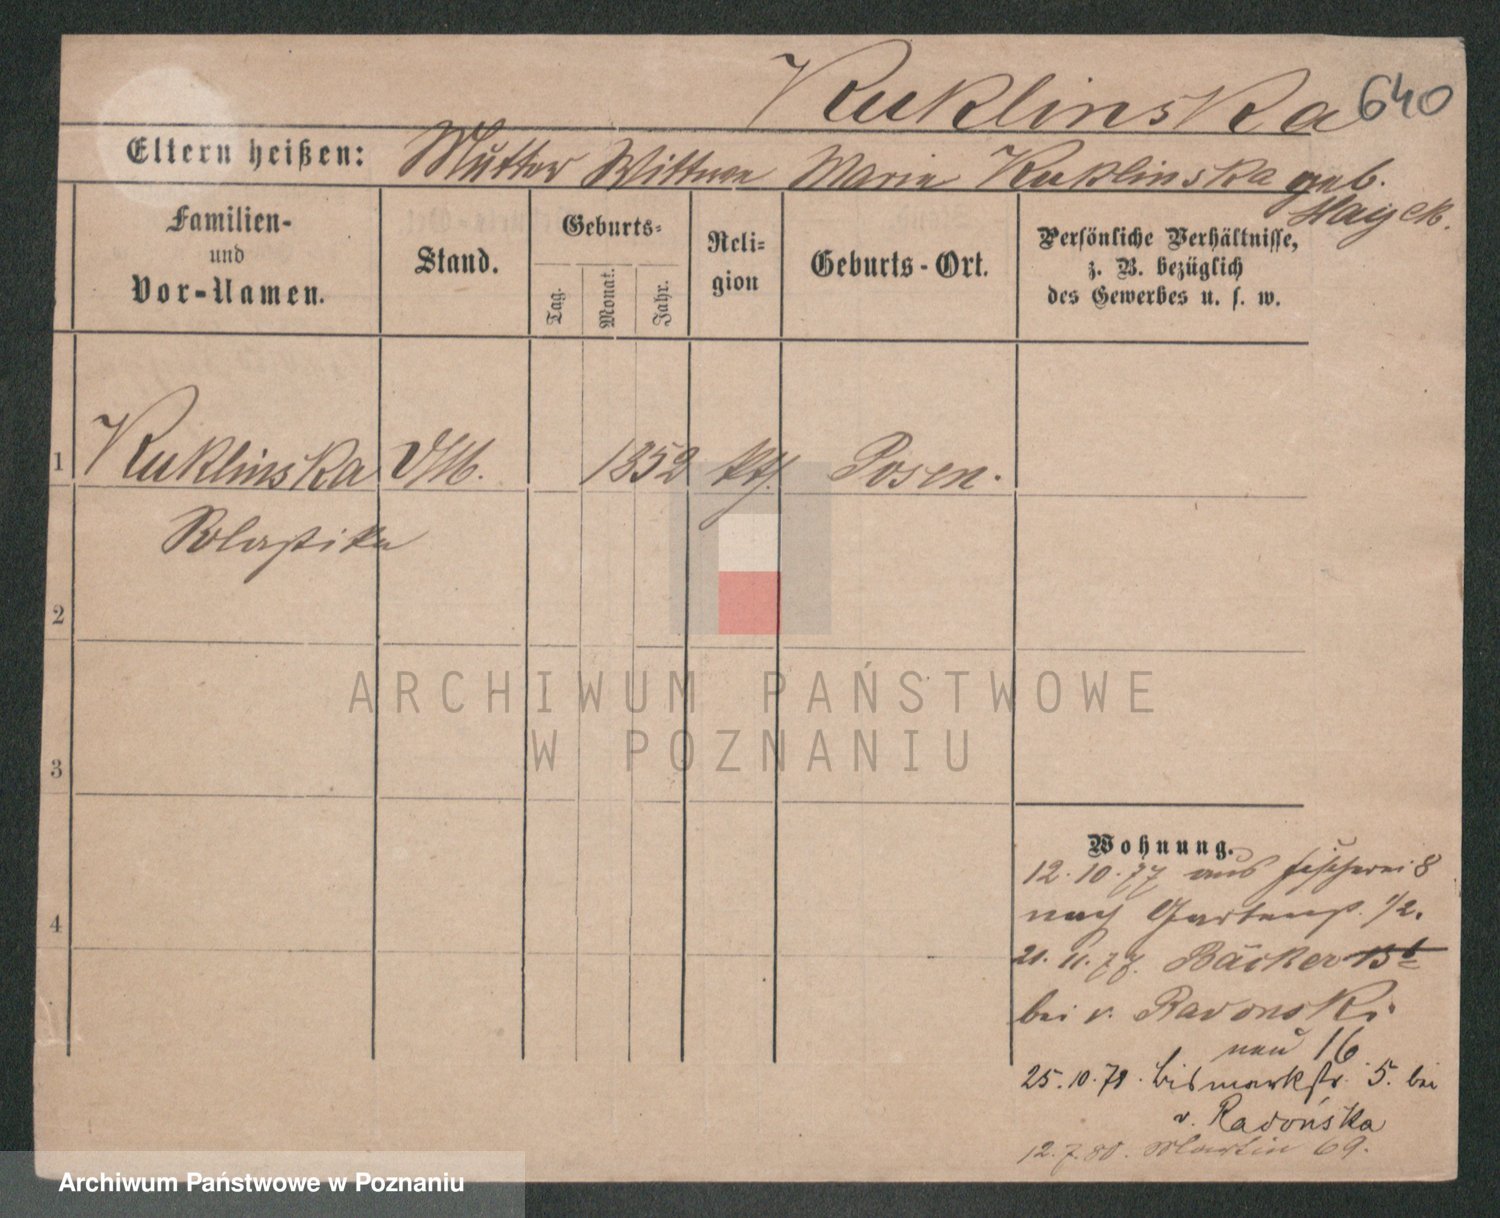 Kuklinska 640
Eltern heißen: Mutter Wittwe Maria Kuklinska geb.
Hayek.
Familien-
und
Vor-Namen.
Stand.
Geburts-
Tag.
Monat.
Jahr.
Reli-
gion
Geburts-Ort.
Persönliche Verhältnisse,
z. B. bezüglich
des Gewerbes u. s. w.
1 Kuklinska 1852 kth. Posen.
2
3
4
ARCHIWUM PAŃSTWOWE
W POZNANIU
Wohnung.
12.10.77 aus Fischerei 8
nach Gartenstr. 1/2.
21.11.77. Bäcker 13b
bei v. Radonski
neu 16
25.10.79. Bismarkstr. 5. bei
v. Radońska
12.7.80. Martin 69.
Archiwum Państwowe w Poznaniu